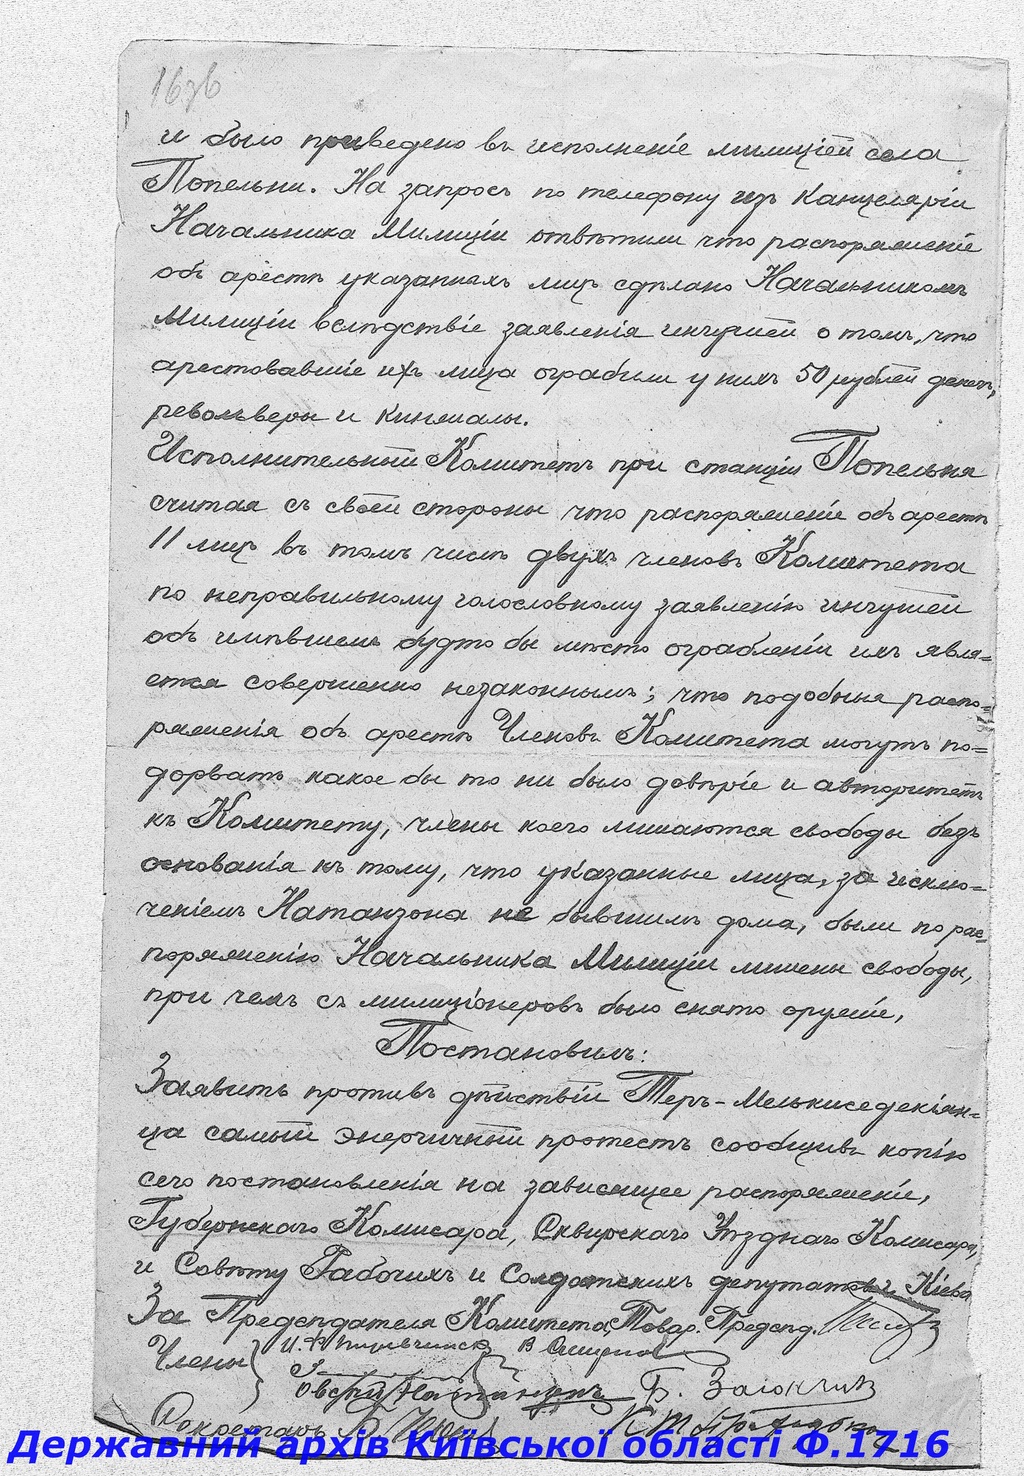 163б
и было приведено въ исполненіе милиціей села
Попельни. На запросъ по телефону изъ Канцеляріи
Начальника Милиціи отвѣтили что распоряженіе
объ арестѣ указанныхъ лицъ сдѣлано Начальникомъ
Милиціи вслѣдствіе заявленія ингушей о томъ, что
арестовавшіе ихъ лица ограбили у нихъ 50 рублей денегъ,
револьверы и кинжалы.
Исполнительный Комитетъ при станціи Попельня
считая съ своей стороны что распоряженіе объ арестѣ
11 лицъ въ томъ числѣ двухъ членовъ Комитета
по неправильному голословному заявленію ингушей
объ имѣвшемъ будто бы мѣсто ограбленіи ихъ явля=
ется совершенно незаконнымъ; что подобныя распо=
ряженія объ арестѣ Членовъ Комитета могутъ по=
дорвать какое бы то ни было довѣріе и авторитетъ
къ Комитету, члены коего лишаются свободы безъ
основанія къ тому, что указанные лица, за исклю=
ченіемъ Натанзона не бывшимъ дома, были по рас=
поряженію Начальника Милиціи лишены свободы,
при чемъ съ милиціонеровъ было снято оружіе,
Постановилъ:
Заявить противъ дѣйствій Теръ-Мелькиседекіян-
ца самый энергичный протестъ сообщивъ копію
сего постановленія на зависящее распоряженіе,
Губернскаго Комисара, Сквирскаго Уѣзднаго Комисара,
и Совѣту Рабочихъ и Солдатскихъ депутатовъ Кіева
За Предсѣдателя Комитета, Товар. Предсѣд.
Члены
Б. Заіончик
Секретарь
Державний архів Київської області Ф.1716